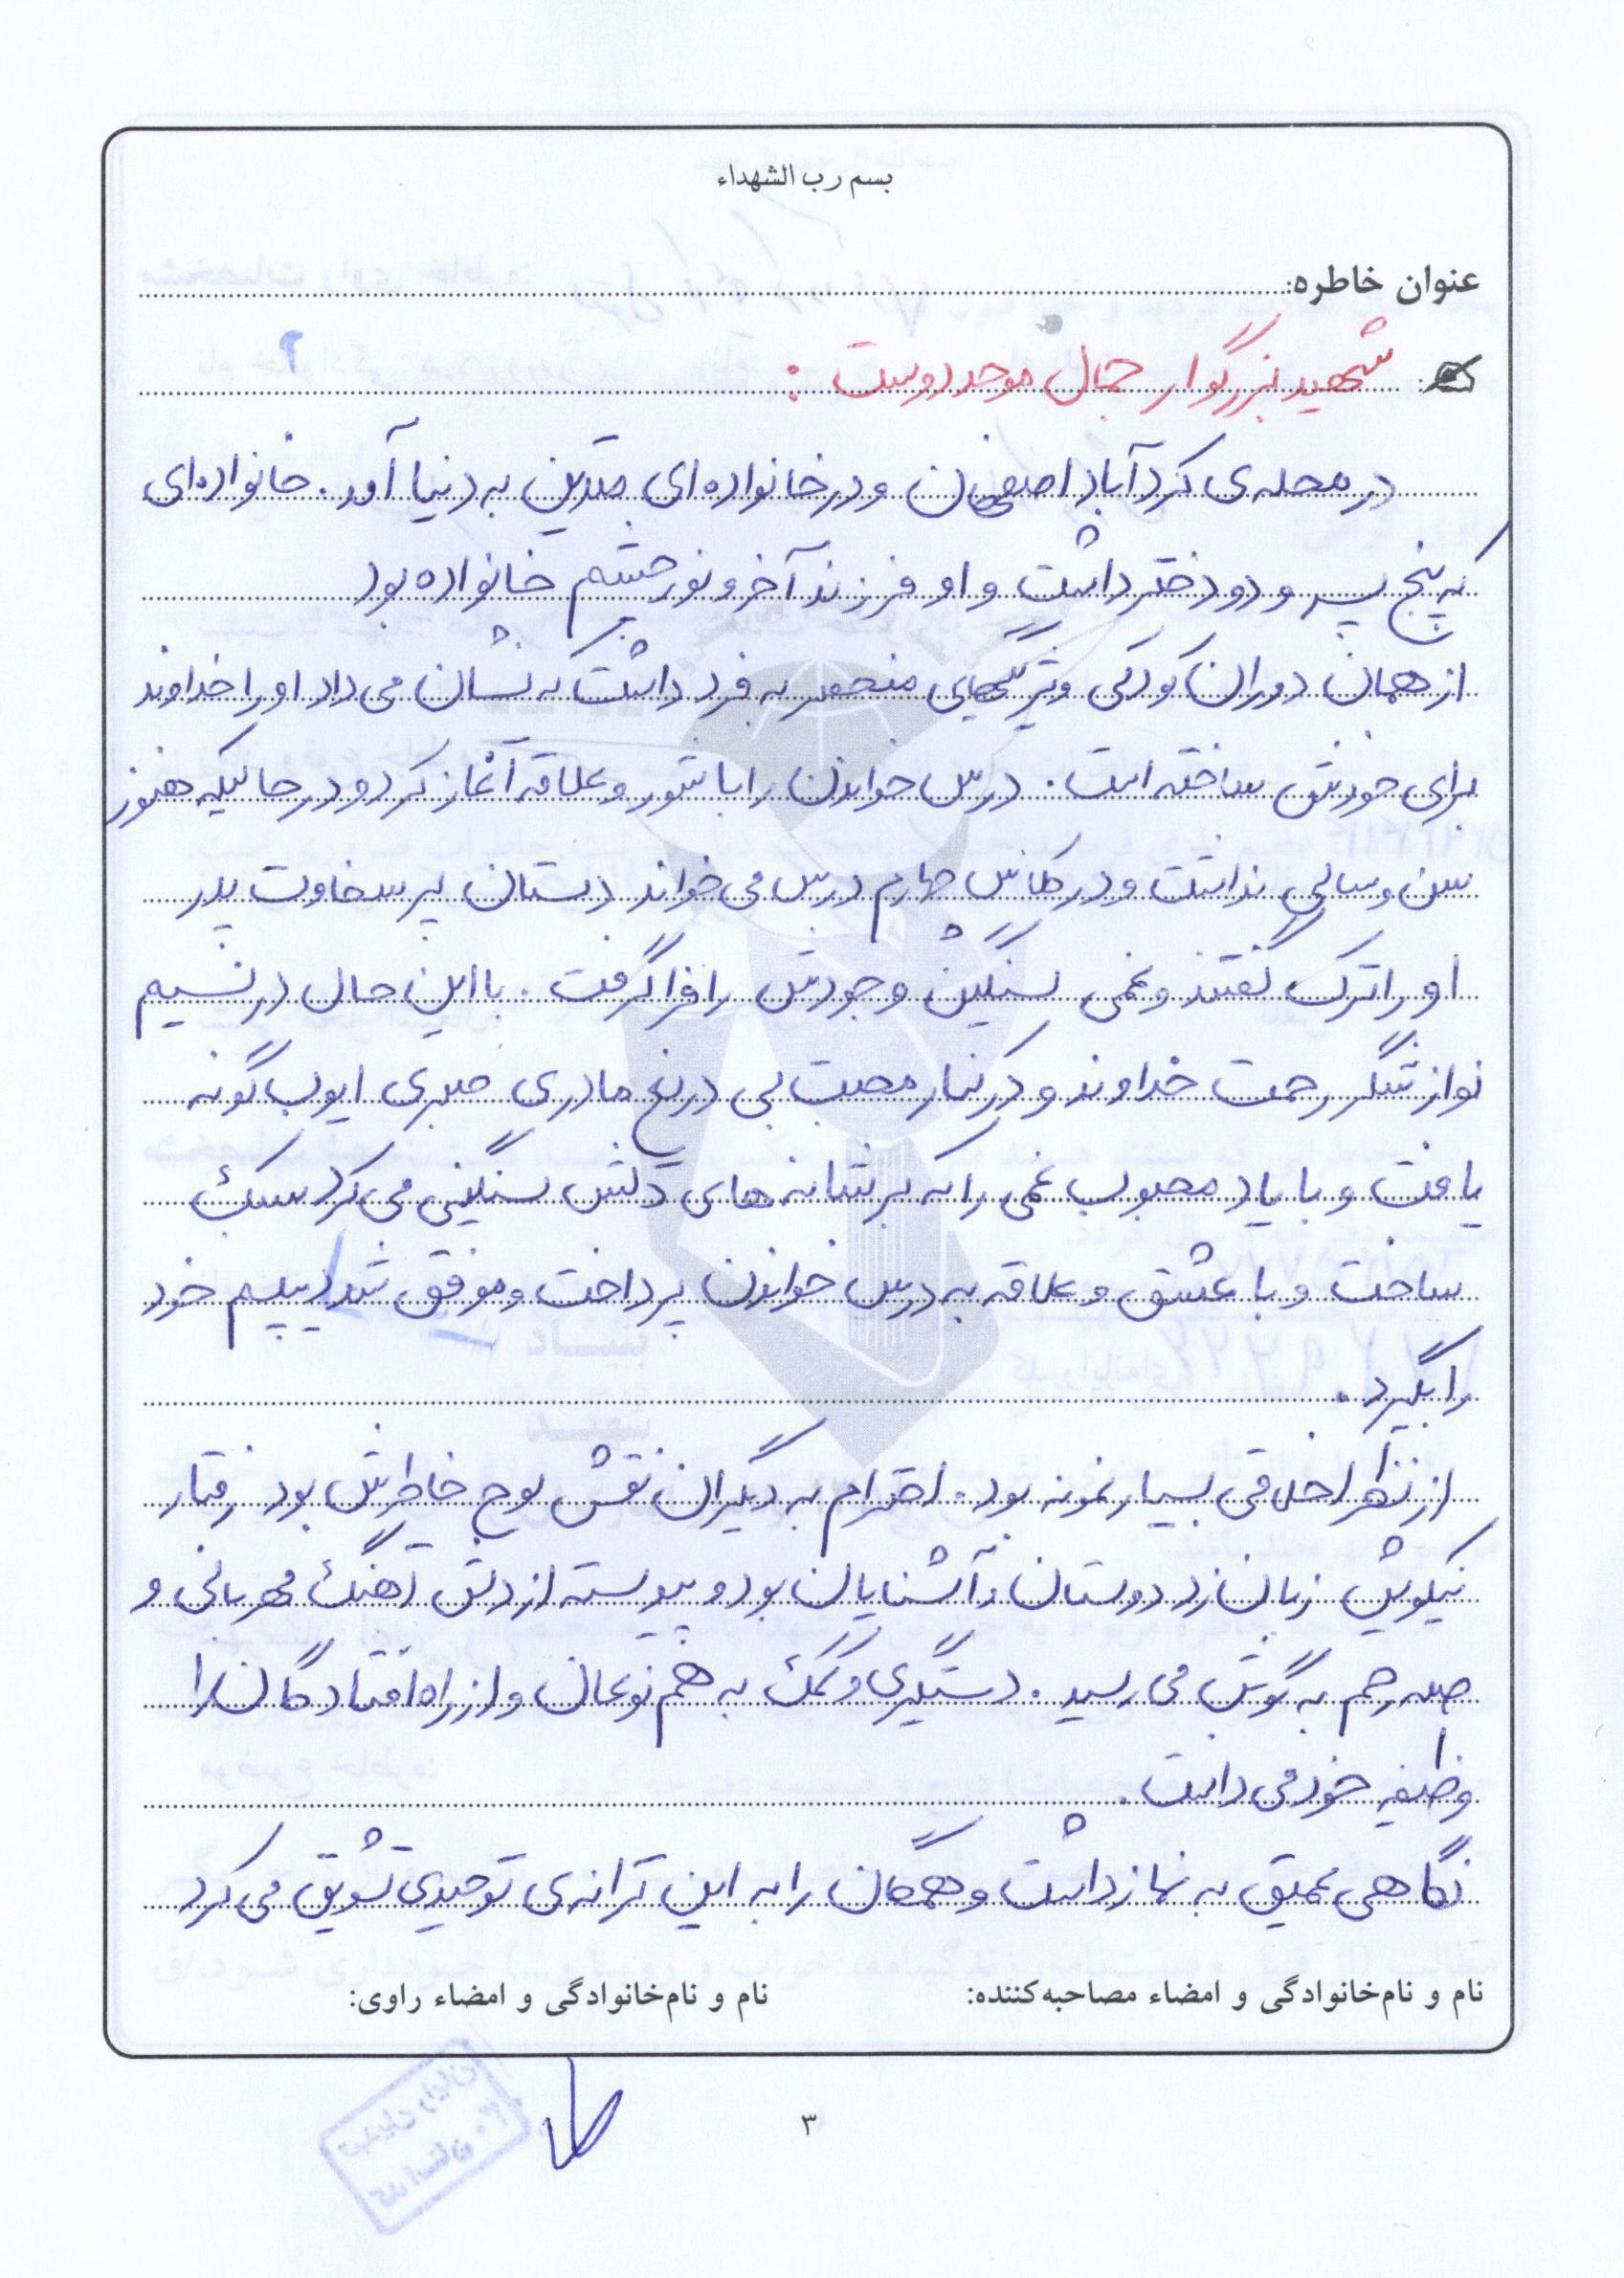 بسم رب الشهداء
عنوان خاطره:
شهید بزرگوار جمال موحد دوست :
در محله ی کردآباد اصفهان و در خانواده ای متدین به دنیا آمد . خانواده ای
که پنج پسر و دو دختر داشت و او فرزند آخر و نور چشم خانواده بود
از همان دوران کودکی ویژگیهای منحصر به فرد داشت که نشان می داد او را خداوند
برای خودش ساخته است . درس خواندن را با شور و علاقه آغاز کرد و در حالیکه هنوز
سن و سالی نداشت و در کلاس چهارم درس می خواند دستان پر سخاوت پدر
او را ترک گفتند و غمی سنگین وجودش را فرا گرفت . با این حال در نسیم
نوازشگر رحمت خداوند و در کنار محبت بی دریغ مادری صبری ایوب گونه
یافت و با یاد محبوب غمی را که بر شانه های دلش سنگینی می کرد سبک
ساخت و با عشق و علاقه به درس خواندن پرداخت و موفق شد دیپلم خود
را بگیرد .
از نظر اخلاقی بسیار نمونه بود . احترام به دیگران نقش لوح خاطرش بود رفتار
نیکویش زبان زد دوستان و آشنایان بود و پیوسته از دلش آهنگ مهربانی و
صله رحم به گوش می رسید . دستگیری و کمک به هم نوعان و از راه افتادگان را
وظیفه خود می دانست .
نگاهی عمیق به نماز داشت و همگان را به این ترانه ی توحیدی تشویق می کرد
نام و نام‌خانوادگی و امضاء مصاحبه‌کننده: نام و نام‌خانوادگی و امضاء راوی:
۳